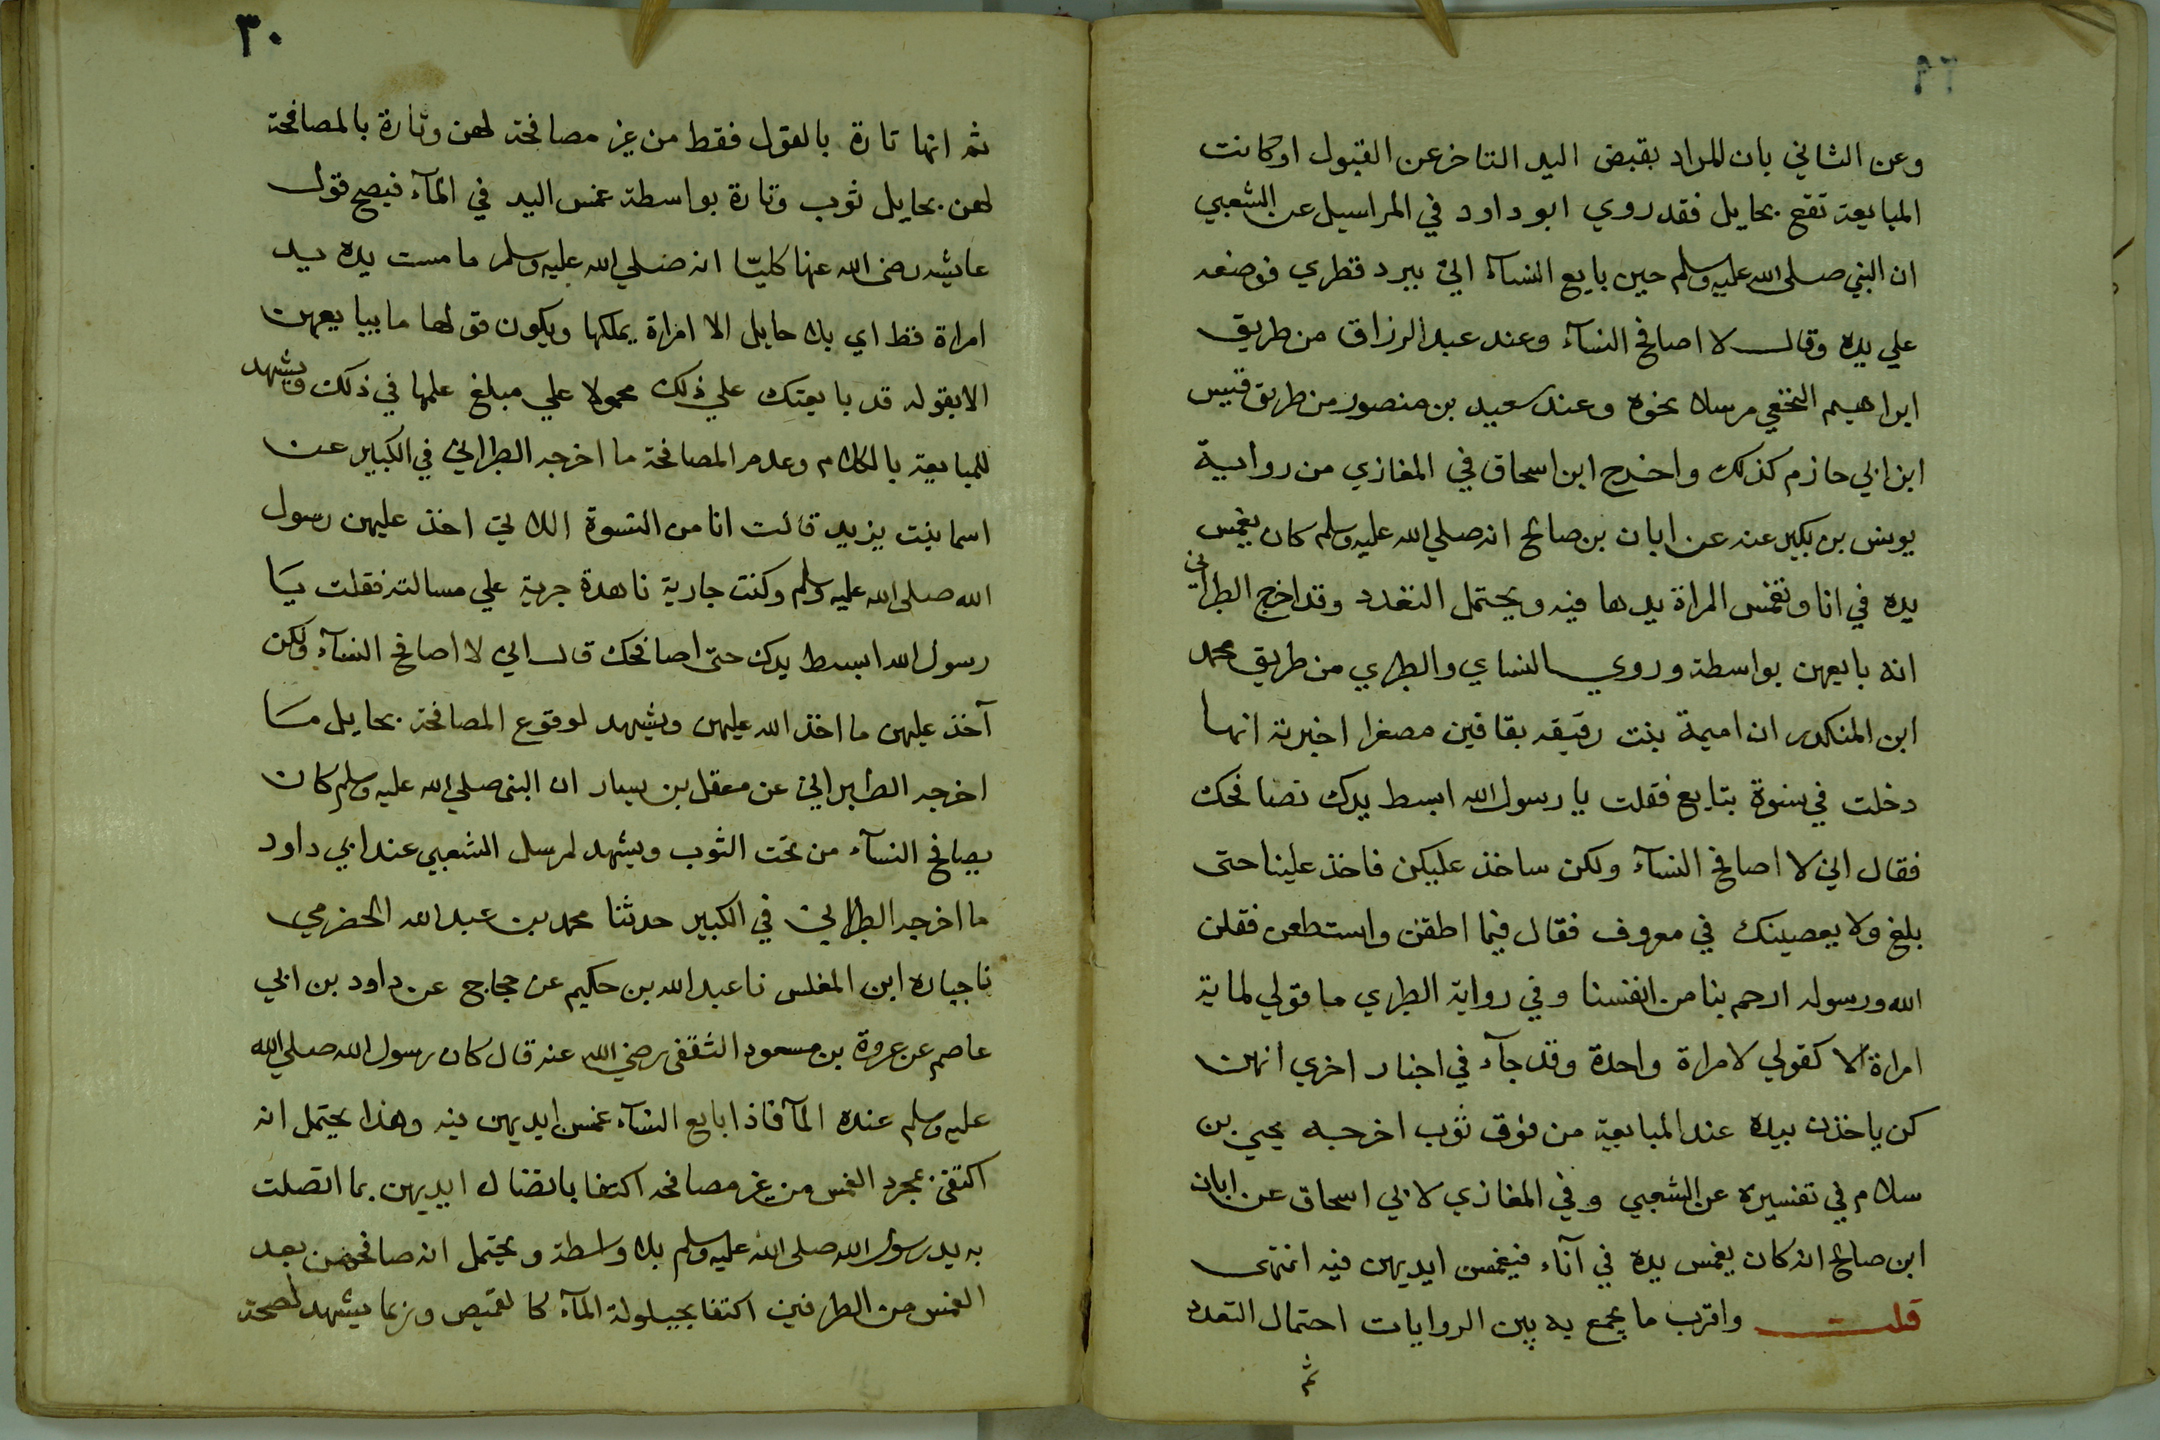 ٢٩
وعن الثاني بان المراد بقبض اليد التاخر عن القبول او كانت
المبايعة تقع بحايل فقد روي ابو داود في المراسيل عن الشعبي
ان النبي صلى الله عليه وسلم حين بايع النساء اتي ببرد قطري فوضعه
علي يده وقال لا اصافح النسآء وعند عبد الرزاق من طريق
ابراهيم النخعي مرسلا نحوه وعند سعيد بن منصور من طريق قيس
ابن ابي حازم كذلك واخرج ابن اسحاق في المغازي من رواية
يونس بن بكير عنه عن ابان بن صالح انه صلي الله عليه وسلم كان يغمس
يده في انا وتغمس المراة يدها فيه ويحتمل التعدد وقد اخرج الطبراني
انه بايعهن بواسطة وروي النساي والطبري من طريق محمد
ابن المنكدر ان اميمة بنت رقيقه بقافين مصغرا اخبرته انها
دخلت في نسوة بتايع فقلت يا رسول الله ابسط يدك نصافحك
فقال اني لا اصافح النسآء ولكن ساخذ عليكن فاخذ علينا حتى
بلغ ولا يعصينك في معروف فقال فيما اطقتن واستطعن فقلن
الله ورسوله ارحم بنا من انفسنا وفي رواية الطبري ما قولي لماية
امراة الا كقولي لامراة واحدة وقد جآء في اخبار اخري انهن
كن ياخذن بيده عند المبايعة من فوق ثوب اخرجه يحيي بن
سلام في تفسيره عن الشعبي وفي المغازي لابي اسحاق عن ابان
ابن صالح انه كان يغمس يده في آناء فيغمسن ايديهن فيه انتهى
قلت واقرب ما يجمع به بين الروايات احتمال التعدد
ثم
٣٠
ثم انها تارة بالقول فقط من غير مصافحة لهن وتارة بالمصافحة
لهن بحايل ثوب وتارة بواسطة غمس اليد في المآء فيصح قول
عايشه رضى الله عنها كليتا انه صلي الله عليه وسلم ما مست يده يد
امراة قط اي بلا حايل الا امراة يملكها ويكون قولها ما يبايعهن
الا بقوله قد بايعتك علي ذلك محمولا علي مبلغ علمها في ذلك ويشهد
للمبايعة بالكلام وعدم المصافحة ما اخرجه الطبراني في الكبير عن
اسما بنت يزيد قالت انا من النسوة اللاتي اخذ عليهن رسول
الله صلى الله عليه وسلم وكنت جارية ناهدة جرية علي مسالته فقلت يا
رسول الله ابسط يدك حتى اصافحك قال اني لا اصافح النسآء ولكن
آخذ عليهن ما اخذ الله عليهن ويشهد لوقوع المصافحة بحايل ما
اخرجه الطبراني عن معقل بن يسار ان النبى صلي الله عليه وسلم كان
يصافح النسآء من تحت الثوب ويشهد لمرسل الشعبي عند ابي داود
ما اخرجه الطبراني في الكبير حدثنا محمد بن عبد الله الحضرمي
نا جباره ابن المغلس نا عبد الله بن حكيم عن حجاج عن داود بن ابي
عاصم عن عروة بن مسعود الثقفى رضي الله عنه قال كان رسول الله صلي الله
عليه وسلم عنده المآ فاذا بايع النسآء غمسن ايديهن فيه وهذا يحتمل انه
اكتفى بمجرد الغمس من غير مصافحه اكتفا باتصال ايديهن بما اتصلت
به يد رسول الله صلى الله عليه وسلم بلا واسطة ويحتمل انه صافحهن بعد
الغمس من الطرفين اكتفا بحيلولة المآء كالقميص وربما يشهد لصحة